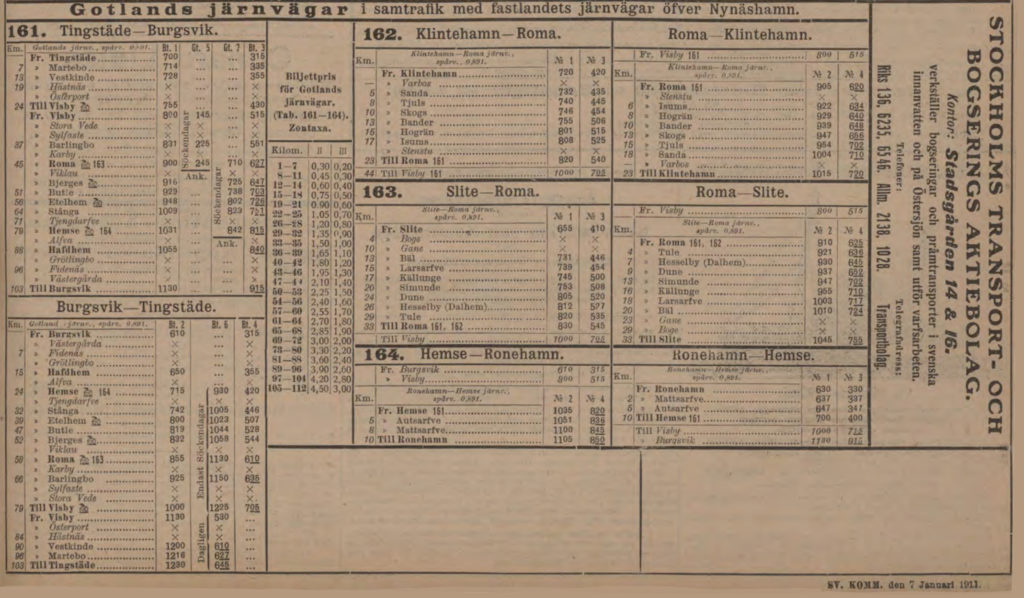 Gotlands järnvägar i samtrafik med fastlandets järnvägar öfver Nynäshamn.
161. Tingstäde—Burgsvik.
Km. Gotlands järnv., spårv. 0,891. Bt. 1 Gt. 5 Gt. 7 Bt. 3
— Fr. Tingstäde 700 ... ... 315
7 » Martebo 714 ... ... 335
13 » Vestkinde 728 ... ... 355
19 » Hästnäs × ... ... ×
» Österport × ... ... ×
24 Till Visby 755 ... ... 430
Fr. Visby 800 145 ... 515
» Stora Vede × × ... ×
» Sylfaste × × ... ×
37 » Barlingbo 831 225 ... 551
» Karby × × ... ×
45 » Roma 163 900 245 710 627
» Viklau × Ank. × ×
» Bjerges 916 725 647
51 » Butle 929 ... 802 703
56 » Etelhem 948 ... 802 726
64 » Stånga 1009 ... 823 751
71 » Tjengdarfve × ... × ×
79 » Hemse 164 1031 842 815
» Alfva × ... Ank. ×
88 » Hafdhem 1055 ... 840
» Grötlingbo × ... ... ×
96 » Fidenäs × ... ... ×
» Västergårda × ... ... ×
103 Till Burgsvik 1130 ... ... 915
Söckendagar
Söckendagar
Burgsvik—Tingstäde.
Km. Gotland. järnv., spårv. 0,891. Bt. 2 Bt. 6 Bt. 4
Fr. Burgsvik 610 ... 315
» Västergårda × ... ×
7 » Fidenäs × ... ×
» Grötlingbo × ... ×
15 » Hafdhem 650 ... 355
» Alfva × ... ×
24 » Hemse 164 715 930 420
» Tjengdarfve × × ×
32 » Stånga 742 1005 446
39 » Etelhem 800 1023 507
47 » Butle 819 1044 528
52 » Bjerges 832 1058 544
» Viklau × × ×
58 » Roma 163 855 1130 610
» Karby × × ×
66 » Barlingbo 925 1150 635
» Sylfaste × × ×
» Stora Vede × × ×
79 Till Visby 1000 1225 705
Fr. Visby 1130 530 ...
» Österport × × ...
84 » Hästnäs × × ...
90 » Vestkinde 1200 610 ...
96 » Martebo 1216 627 ...
103 Till Tingstäde 1230 645 ...
Endast Söckendagar
Dagligen
Biljettpris
för Gotlands
järnvägar.
(Tab. 161—164).
Zontaxa.
Kilom. II III
1—7 0,30 0,20
8—11 0,45 0,30
12—14 0,60 0,40
15—18 0,75 0,50
19—21 0,90 0,60
22—25 1,05 0,70
26—28 1,20 0,80
29—32 1,35 0,90
33—35 1,50 1,00
36—39 1,65 1,10
40—42 1,80 1,20
43—46 1,95 1,30
47—49 2,10 1,40
50—53 2,25 1,50
54—56 2,40 1,60
57—60 2,55 1,70
61—64 2,70 1,80
65—68 2,85 1,90
69—72 3,00 2,00
73—80 3,30 2,20
81—88 3,60 2,40
89—96 3,90 2,60
97—104 4,20 2,80
105—112 4,50 3,00
162. Klintehamn—Roma.
Km. Klintehamn—Roma järnv., spårv. 0,891. № 1 № 3
Fr. Klintehamn 720 420
» Varbos × ×
5 » Sanda 732 435
8 » Tjuls 740 445
10 » Skogs 746 454
13 » Bander 755 506
15 » Hogrän 801 515
17 » Isums 808 525
» Stenstu × ×
23 Till Roma 161 820 540
44 Till Visby 161 1000 705
Roma—Klintehamn.
Fr. Visby 161 800 515
Km. Klintehamn—Roma järnv., spårv. 0,891. № 2 № 4
Fr. Roma 161 905 620
» Stenstu × ×
6 » Isums 922 634
8 » Hogrän 929 640
10 » Bander 939 648
13 » Skogs 947 656
15 » Tjuls 954 702
18 » Sanda 1004 710
» Varbos × ×
23 Till Klintehamn 1015 720
163. Slite—Roma.
Km. Slite—Roma järnv., spårv. 0,891. № 1 № 3
Fr. Slite 655 410
4 » Boge × ×
10 » Gane × ×
13 » Bäl 731 446
15 » Larsarfve 739 454
17 » Källunge 745 500
20 » Simunde 753 508
24 » Dune 805 520
26 » Hesselby (Dalhem) 812 527
29 » Tule 820 535
33 Till Roma 161, 162 830 545
Till Visby 1000 705
Roma—Slite.
Fr. Visby 800 515
Km. Slite—Roma järnv., spårv. 0,891. № 2 № 4
Fr. Roma 161, 162 910 625
4 » Tule 921 636
7 » Hesselby (Dalhem) 930 645
9 » Dune 937 652
13 » Simunde 947 702
16 » Källunge 955 710
18 » Larsarfve 1003 717
20 » Bäl 1010 724
23 » Gane × ×
29 » Boge × ×
33 Till Slite 1045 755
164. Hemse—Ronehamn.
Fr. Burgsvik 610 315
» Visby 800 515
Km. Ronehamn—Hemse järnv., spårv. 0,891. № 2 № 4
Fr. Hemse 161 1035 820
5 » Autsarfve 1051 836
8 » Mattsarfve 1100 845
10 Till Ronehamn 1105 850
Ronehamn—Hemse.
Km. Ronehamn—Hemse järnv., spårv. 0,891. № 1 № 3
Fr. Ronehamn 630 330
2 » Mattsarfve 637 337
5 » Autsarfve 647 347
10 Till Hemse 161 700 400
Till Visby 1000 715
» Burgsvik 1130 915
STOCKHOLMS TRANSPORT- OCH
BOGSERINGS AKTIEBOLAG.
Kontor: Stadsgården 14 & 16.
verkställer bogseringar och pråmtransporter i svenska
innanvatten och på Östersjön samt utför varfsarbeten.
Telefoner: Telegrafadress:
Riks 136, 6235, 6546. Allm. 2138, 1028. Transportbolag.
SV. KOMM. den 7 Januari 1911.